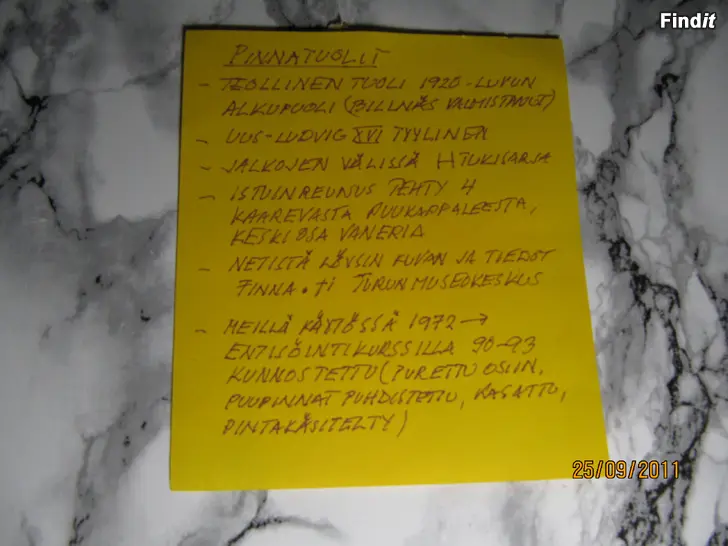 Findit
PINNATUOLIT
- TEOLLINEN TUOLI 1920-LUVUN
ALKUPUOLI (BILLNÄS VALMISTANUT)
- UUS-LUDVIG XVI TYYLINEN
- JALKOJEN VÄLISSÄ H TUKISARJA
- ISTUINREUNUS TEHTY 4
KAAREVASTA PUUKAPPALEESTA,
KESKIOSA VANERIA
- NETISTÄ LÖYSIN KUVAN JA TIEDOT
FINNA.fi TURUN MUSEOKESKUS
- MEILLÄ KÄYTÖSSÄ 1972 →
ENTISÖINTIKURSSILLA 90-93
KUNNOSTETTU (PURETTU OSIIN,
PUUPINNAT PUHDISTETTU, KASATTU,
PINTAKÄSITELTY)
25/09/2011